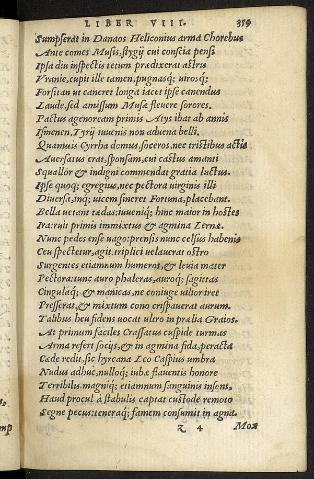 LIBER VIII. 359
Sumpserat in Danaos Heliconius arma Chorebus
Ante comes Musis, stygij cui conscia pensi
Ipsa diu inspectis letum prædixerat astris
Vranie, cupit ille tamen, pugnasq; uirosq;
Forsitan ut caneret longa iacet ipse canendus
Laude, sed amissum Musæ fleuere sorores.
Pactus agenoream primis Atys ibat ab annis
Ismenen, Tyrij iuuenis non aduena belli.
Quamuis Cyrrha domus, soceros nec tristibus actis
Auersatus erat, sponsam, cui castus amanti
Squallor & indigni commendat gratia luctus.
Ipse quoq; egregius, nec pectora uirginis illi
Diuersa, inq; uicem sineret Fortuna, placebant.
Bella uetant tædas: iuueniq; hinc maior in hostes
Ira: ruit primis immixtus & agmina Lernæ.
Nunc pedes ense uago: prensis nunc celsus habenis
Ceu spectetur, agit. triplici uelauerat ostro
Surgentes etiamnum humeros, & leuia mater
Pectora: tunc auro phaleras, auroq; sagittas
Cingulaq; & manicas, ne coniuge uilior iret
Presserat, & mixtum cono crispauerat aurum.
Talibus heu fidens uocat ultro in prælia Graios.
At primum faciles Crassatus cuspide turmas
Arma refert socijs, & in agmina fida, peracta
Cæde redit, sic hyrcana Leo Caspius umbra
Nudus adhuc, nulloq; iubæ flauentis honore
Terribilis. magniq; etiamnum sanguinis insons,
Haud procul à stabulis captat custode remoto
Segne pecus: teneraq; famem consumit in agna.
Z 4 Mox